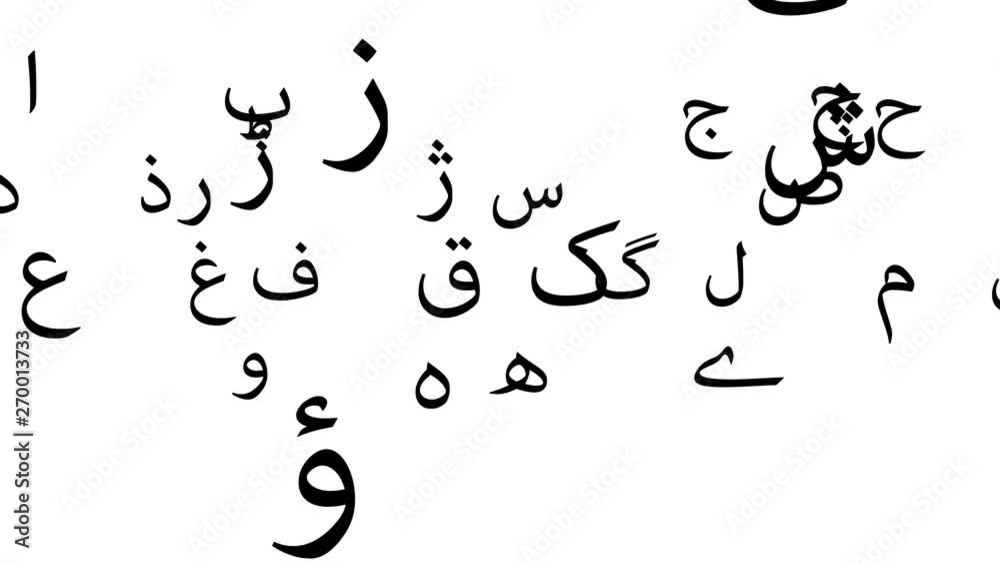 ا ب ج چ ح
د ذ ر ڑ ز ژ س ش ص
ع غ ف ق ک گ ل م
و ہ ھ ے
ؤ
Adobe Stock | #270013733